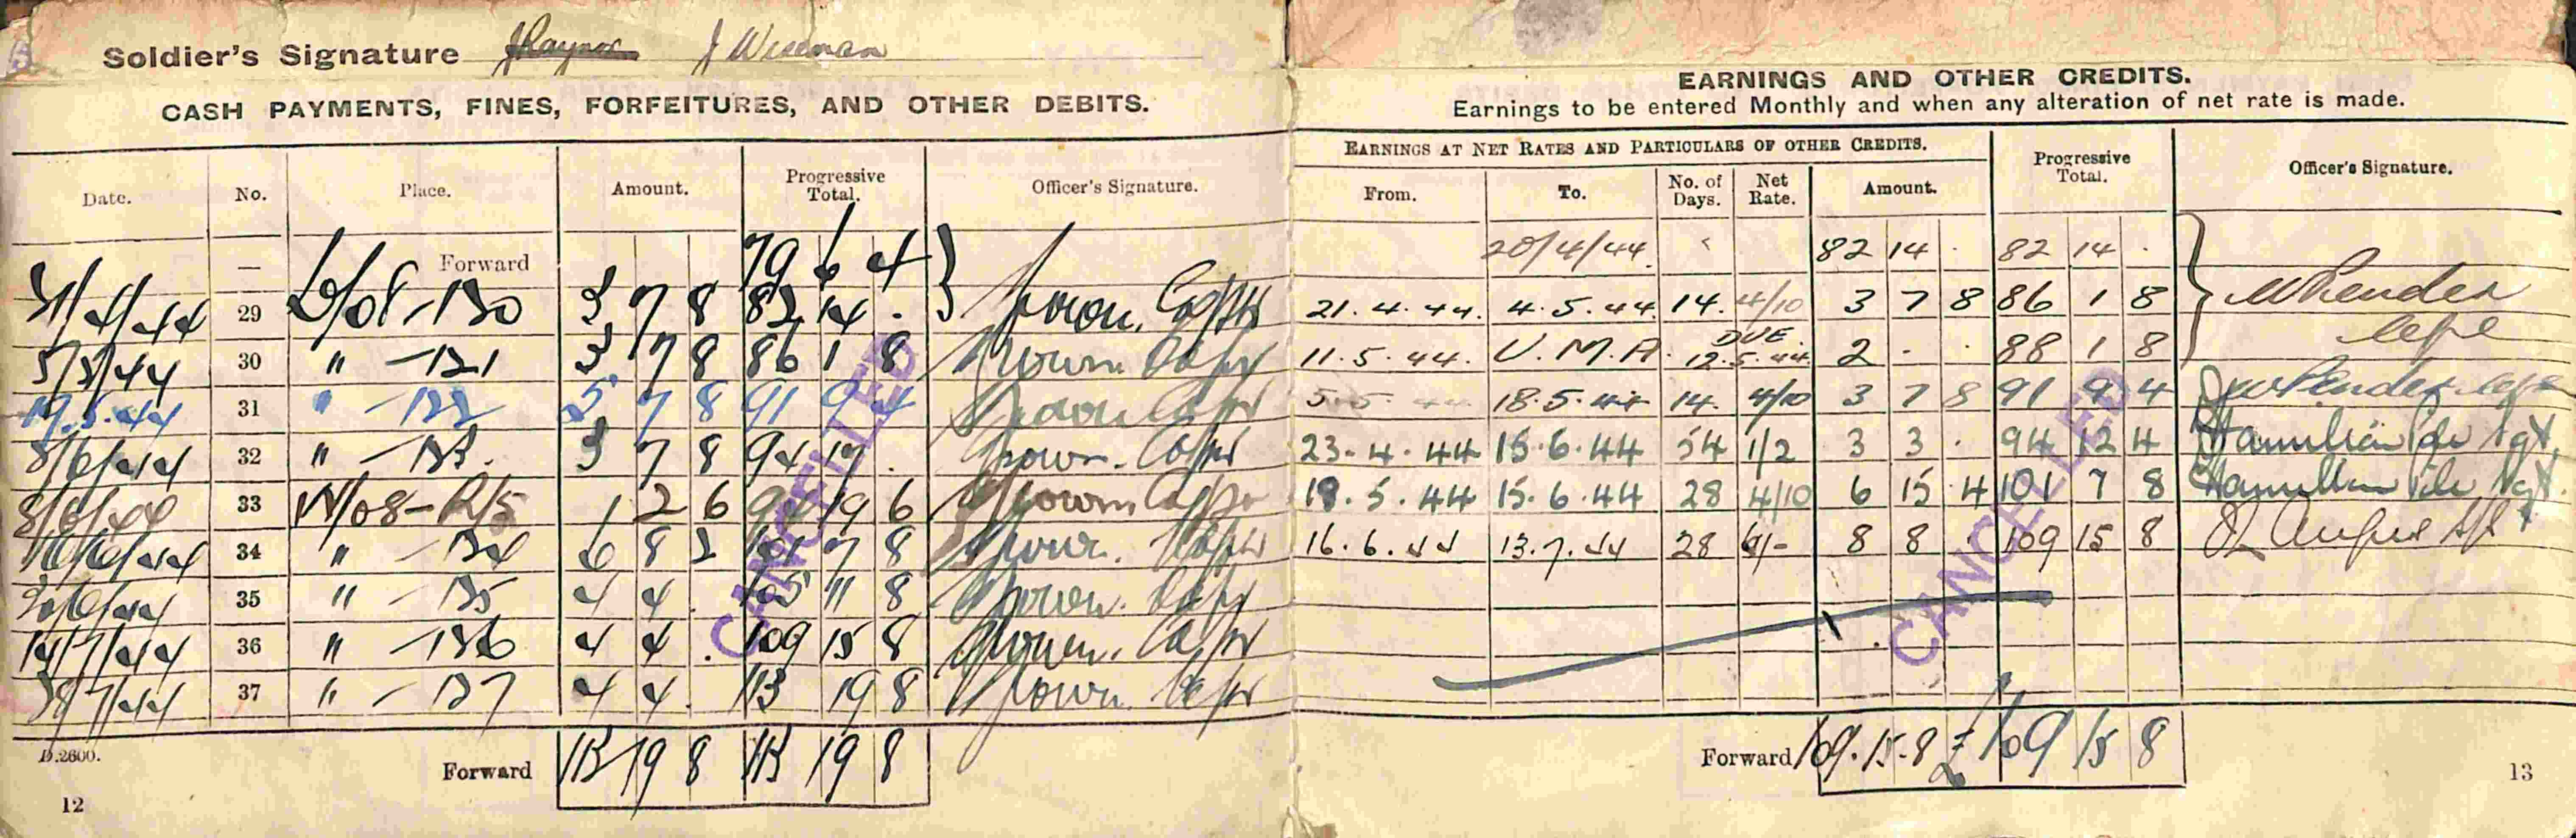 Soldier's Signature J Wiseman
CASH PAYMENTS, FINES, FORFEITURES, AND OTHER DEBITS.
Date. No. Place. Amount. Progressive Total. Officer's Signature.
— Forward 79 6 4
29 3 7 8 82 14 . Capt
5/5/44 30 " 3 7 8 86 1 8 Capt
19.5.44 31 " 5 7 8 91 9 4 Capt
8/6/44 32 " 3 7 8 94 17 . Capt
8/6/44 33 1 2 6 9 6 Capt
16/6/44 34 " 6 8 2 101 7 8 Capt
35 " 4 4 . 105 11 8 Capt
14/7/44 36 " 4 4 . 109 15 8 Capt
37 " 4 4 . 113 19 8 Capt
CANCELLED
Forward 113 19 8 113 19 8
D.2600.
12
EARNINGS AND OTHER CREDITS.
Earnings to be entered Monthly and when any alteration of net rate is made.
EARNINGS AT NET RATES AND PARTICULARS OF OTHER CREDITS. Progressive Total. Officer's Signature.
From. To. No. of Days. Net Rate. Amount.
20/4/44. 82 14 . 82 14 .
21.4.44. 4.5.44. 14. 4/10 3 7 8 86 1 8
11.5.44. U.M.A. DUE 12.5.44. 2 - . 88 1 8
5.5.44 18.5.44 14. 4/10 3 7 8 91 9 4
23.4.44 15.6.44 54 1/2 3 3 . 94 12 4 Hamilton Sgt
19.5.44 15.6.44 28 4/10 6 15 4 101 7 8 Hamilton Sgt
16.6.44 13.7.44 28 6/- 8 8 . 109 15 8 Angus
CANCELLED
Forward 109.15.8 £ 109 15 8
13